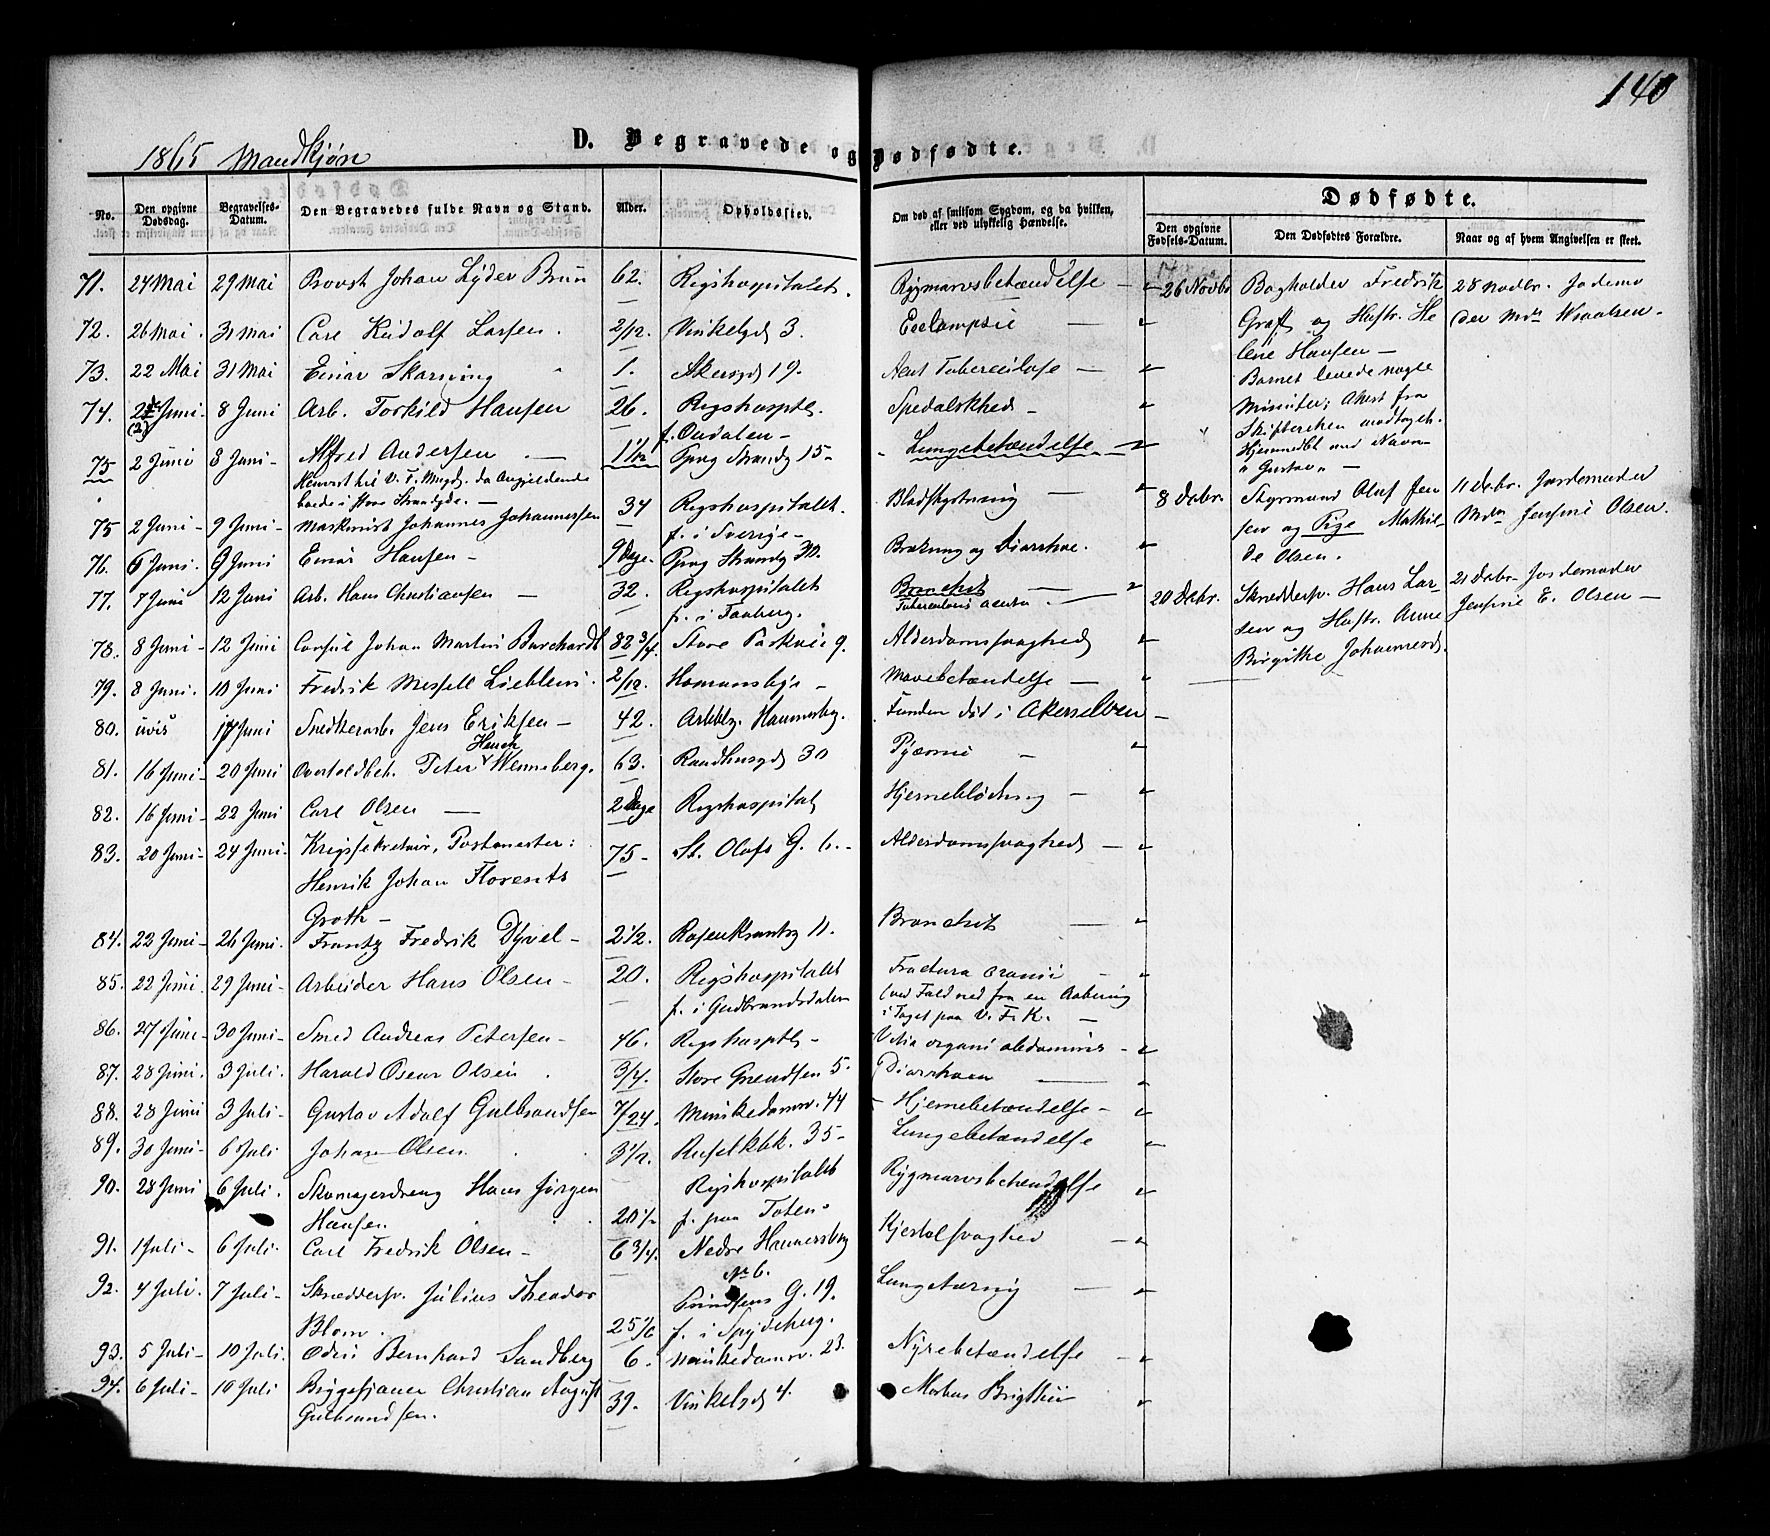 140
1865 Mandkjøn
D. Begravede og Dødfødte.
No. | Den opgivne Dødsdag. | Begravelses-Datum. | Den Begravedes fulde Navn og Stand. | Alder. | Opholdssted. | Om død af smitsom Sygdom, og da hvilken, eller ved ulykkelig Hændelse.
71. 24 Mai 29 Mai Provst Johan Lyder Brun 62. Rigshospitalet. Rygmarvsbetændelse
72. 26 Mai. 31 Mai Carl Rudolf Larsen. 2/12. Vinkelgd 3. Eclampsie
73. 22 Mai 31 Mai Einar Skarning 1. Akersgd 19. Acut Tuberculose
74. 2 Juni 8 Juni Arb. Torkild Hansen 26. Rigshosptl. Spedalskhed
(2) f. Ondalen
75 2 Juni 8 Juni Alfred Andersen 1 1/2 Pprg Strandg 15 Lungebetændelse
Henvist til V. F. Migdh. da Angjeldende
boede i Store Strandgde.
75 2 Juni 9 Juni Maskinist Johannes Johannessen 34 Rigshospitalet. Blodstyrtning
f. i Sverige
76. 6 Juni. 9 Juni Einar Hansen 9 Dage. Pprg Strandg 30. Brækning og Diarrhoe.
77. 7 Juni 12 Juni Arb. Hans Christiansen 32. Rigshospitalet Bronchit
f. i Faaberg. Tuberculosis acuta.
78. 8 Juni 12 Juni Consul Johan Martin Burchardt 82 3/4. Store Voxkai 9. Alderdomssvaghed
79. 8 Juni. 10 Juni Fredrik Messell Lieblein. 2/12. Homansbye Mavebetændelse
80. uvis 17 Juni Snedkerarb. Jens Eriksen 42. Arbbtg. Hammersbg. Funden død i Akerselven
Henrik
81. 16 Juni 20 Juni Overtoldbet. Peter Wenneberg. 63. Raadhusgd 30 Pyæmie
82. 16 Juni 22 Juni Carl Olsen 2 Dage Rigshospitalet Hjerneblødning
83. 20 Juni 24 Juni Krigssekretair, Postmester: 75 St. Olafs G. 6. Alderdomssvaghed
Henrik Johan Florents
Groth
84. 22 Juni 26 Juni. Frantz Fredrik Dyvel 2 1/2. Rosenkrantzg 11. Bronchit
85. 22 Juni. 29 Juni Arbeider Hans Olsen 20. Rigshospitalet Fractura cranii
f. i Gudbrandsdalen (ved Fald ned fra en Aabning
i Taget paa V. F. K.
86. 27 Juni 30 Juni Smed Andreas Petersen 46. Rigshosptl Vitia organi abdominis
87. 28 Juni. 3 Juli. Harald Oscar Olsen 3/4. Store Grendsen 5. Diarrhoea
88. 28 Juni 3 Juli Gustav Adolf Gulbrandsen 7/24. Munkedamsv. 44 Hjernebetændelse
89. 30 Juni 6 Juli Johan Olsen. 3 1/2. Ruseløkbk. 35 Lungebetændelse
90. 28 Juni 6 Juli. Skomagerdreng Hans Jørgen Rigshospitalet Rygmarvsbetændelse
Hansen 20 1/2 f. paa Toten
91. 1 Juli 6 Juli. Carl Fredrik Olsen 6 3/4. Nedre Hammersbg Kjertelsvaghed
No 6.
92. 4 Juli. 7 Juli Skræddersv. Julius Theodor Grændsens G. 19. Lungetæring
Blom. 25 1/6 f. i Spydeberg.
93. 5 Juli 10 Juli. Odin Bernhard Sandberg 6. Munkedamsv. 23. Nyrebetændelse
94. 6 Juli 10 Juli Byggesjauer Christian August 39. Vinkelgd 4. Morbus Brightii
Gulbrandsen.
Dødfødte.
Den opgivne Fødsels-Datum. | Den Dødfødtes Forældre. | Naar og af hvem Angivelsen er skeet.
26 Novbr Bogholder Fredrik 28 Novbr. Jodemo
Graff og Hustr. He der Md Wraalsen.
lene Hansen
Barnet levede nogle
Minuter; Attest fra
Skifteretten modtoges.
Hjemmedbt med Navn
"Gustav"
8 Decbr. Styrmand Oluf Jen 11 Decbr. Jordemoder
sen og Pige Mathil- Mdm Jensine Olsen.
de Olsen.
20 Decbr. Skræddersv. Hans Lar- 21 Decbr Jordemoder
sen og Hustr. Anne Jensine E. Olsen
Birgitte Johannesd.